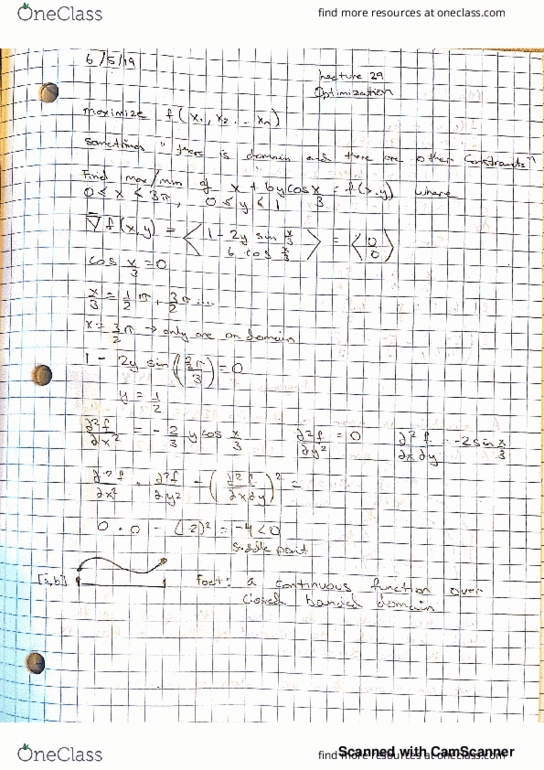 OneClass
find more resources at oneclass.com
6/5/19
Lecture 29
Optimization
maximize f(x₁, x₂ ... xₙ)
sometimes "there is domain and there are other constraints"
Find max/min of x + 6ycos x/3 = f(x,y) where
0 ≤ x ≤ 3π, 0 ≤ y ≤ 1
∇f(x,y) = ⟨1 - 2y sin x/3, 6 cos x/3⟩ = ⟨0, 0⟩
cos x/3 = 0
x/3 = 1/2 π, 3/2 π ...
x = 3/2 π → only one on domain
1 - 2y sin( ) = 0
y = 1/2
∂²f/∂x² = - 2/3 y cos x/3 ∂²f/∂y² = 0 ∂²f/∂x∂y = -2 sin x/3
∂²f/∂x² · ∂²f/∂y² - (∂²f/∂x∂y)² =
0 · 0 - (2)² = -4 < 0
saddle point
[a,b] Fact: a continuous function over
closed bounded domain
OneClass
find more resources at oneclass.com
Scanned with CamScanner